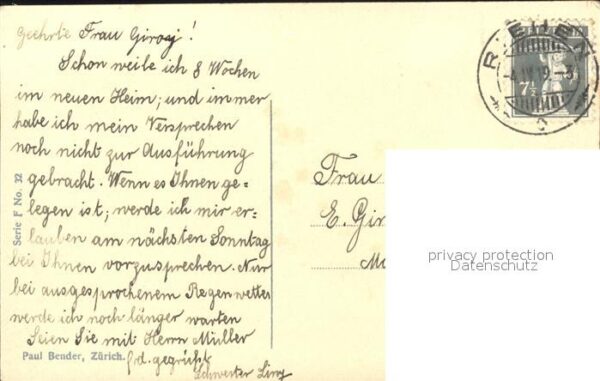 Geehrte Frau Girog!
Schon weile ich 8 Wochen
im neuen Heim; und immer
habe ich mein Versprechen
noch nicht zur Ausführung
gebracht. Wenn es Ihnen ge=
legen ist; werde ich mir er=
lauben am nächsten Sonntag
bei Ihnen vorzusprechen. Nur
bei ausgesprochenem Regenwetter
werde ich noch länger warten
Seien Sie mit Herrn Müller
frd. gegrüßt
Schwester Liny
Serie F No. 32
Paul Bender, Zürich.
RIEHEN
7½
Frau
E. Gir
privacy protection
Datenschutz